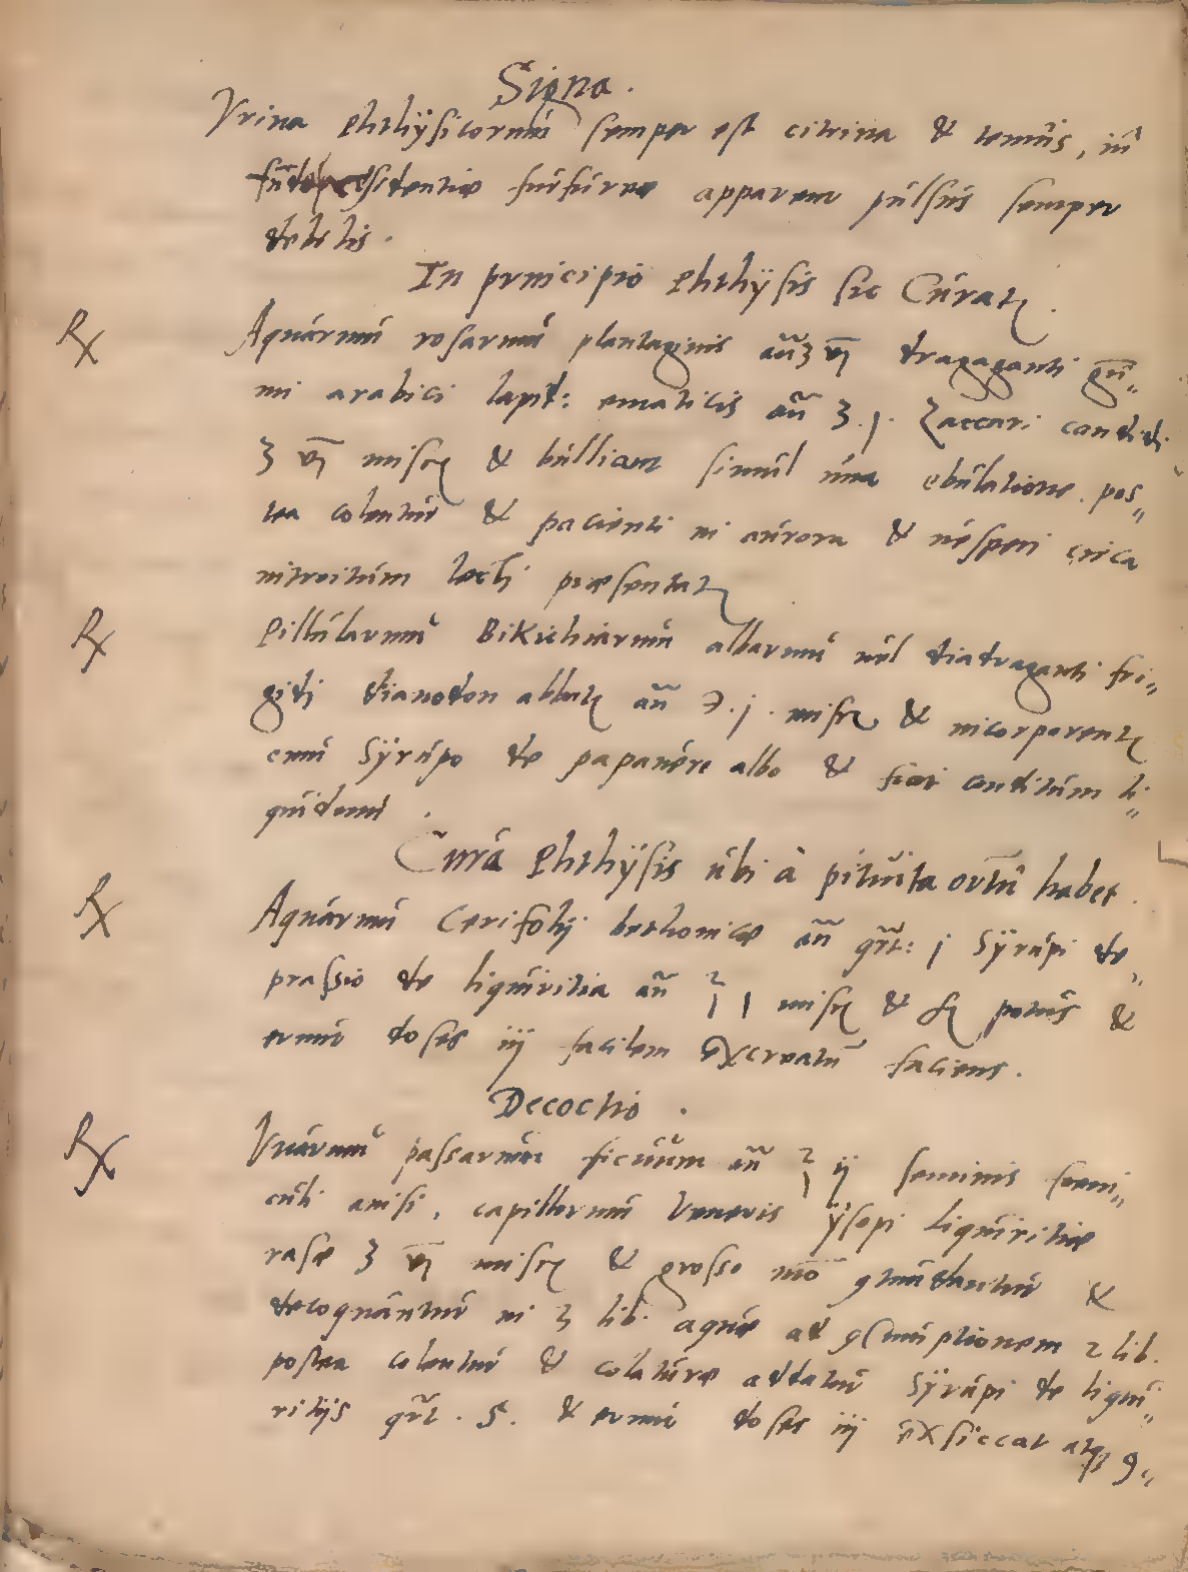 Signa.
Vrina Phthÿsicorum semper est citrina & tenuis, in
residentiæ furfureæ apparent pulsus semper
debilis.
In principio Phthÿsis sic Curatꝛ.
℞ Aquarum rosarum plantaginis añ ʒ vj dragaganti gū„
mi arabici lapid: ematicis añ ʒ.j. Zaccari candidi
ʒ vj miscꝛ & bulliant simul una ebulatione. pos„
tea colentur & pacienti in aurora & uesperi circa
introitum lecti præsentatꝛ
℞ Pillularum Bikichiarum albarum uel diadraganti fri„
gidi dianodon abbatꝛ añ ℈.j. miscꝛ & incorporentꝛ
cum Sÿrupo de papauere albo & fiat conditum li„
quidum.
Cura Phthÿsis ubi à pituita ortū habet.
℞ Aquarum Cerifolij bethonicæ añ qrt: j Sÿrupi de„
prassio de liquiritia añ ℥ j miscꝛ & fꝛ potus &
erunt doses iij facilem excreatū faciens.
Decoctio.
℞ Vuarum passarum ficuum añ ℥ ij seminis foeni„
culi anisi, capillorum Veneris ÿsopi liquiritiæ
rasæ ʒ vj miscꝛ & grosso mō ꝯtundantur &
decoquantur in 3 lib. aquæ ad ꝯsumptionem 2 lib.
postea colentur & colaturæ addatur Sÿrupi de liqui„
ritijs qrt. s. & erunt doses iij exsiccat atqꝫ ꝯ„